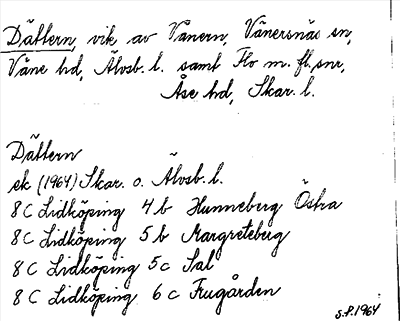 Dättern, vik av Vänern, Vänersnäs sn,
Väne hd, Älvsb. l. samt Flo m. fl. snr,
Åse hd, Skar. l.
Dättern
ek (1964) Skar. o. Älvsb. l.
8 C Lidköping 4 b Hunneberg Östra
8 C Lidköping 5 b Margreteberg
8 C Lidköping 5 c Sal
8 C Lidköping 6 c Frugården
S.P. 1964